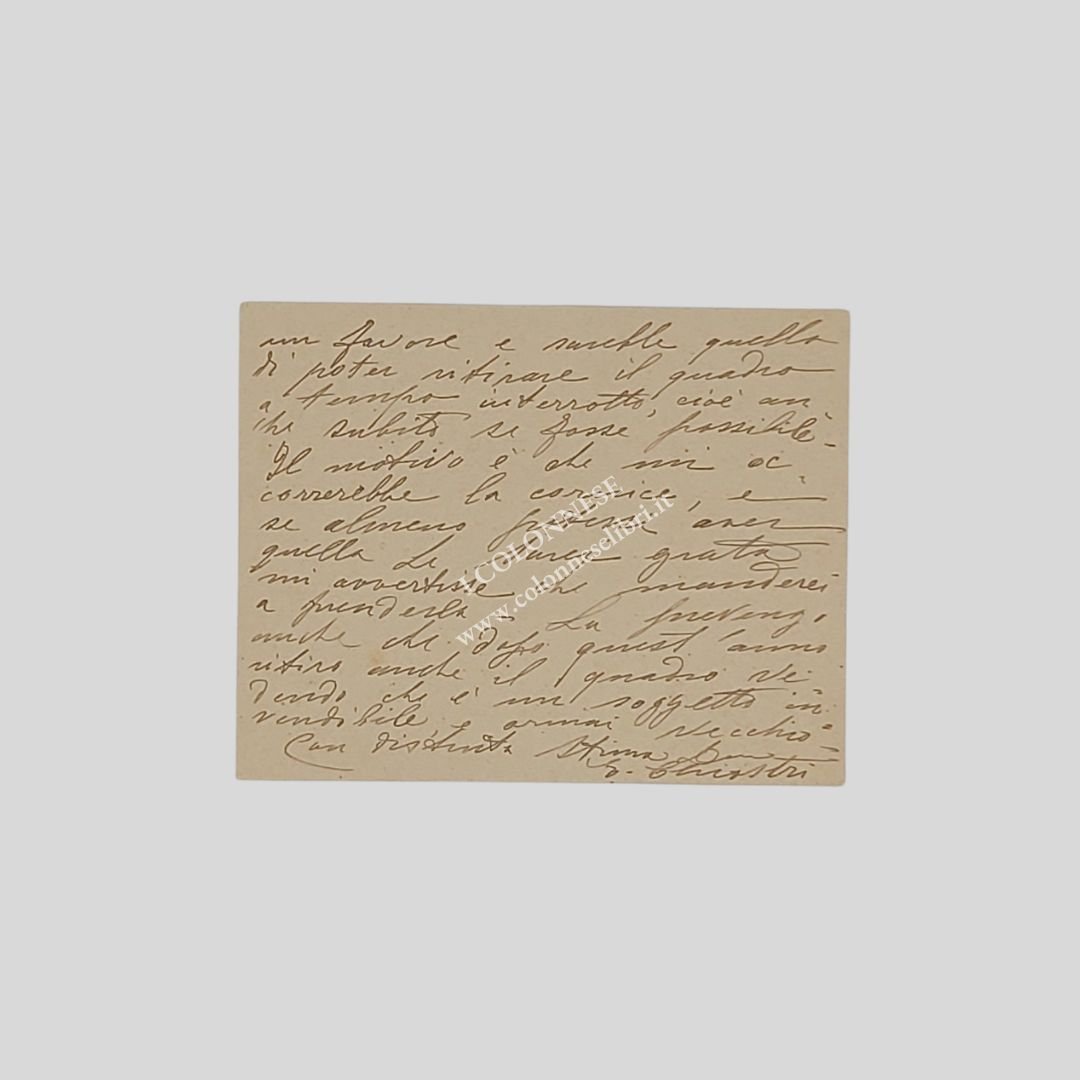 un favore e sarebbe quello
di poter ritirare il quadro
a tempo interrotto, cioè an
che subito se fosse possibile -
Il motivo è che mi oc
correrebbe la cornice, e
se almeno potessi aver
quella Le sarei grata
mi avvertisse che manderei
a prenderla - La prevengo
anche che dopo quest'anno
ritiro anche il quadro ve
dendo che è un soggetto in
vendibile e ormai vecchio -
Con distinta stima
E. Chiostri
I COLONNESE
www.colonneselibri.it